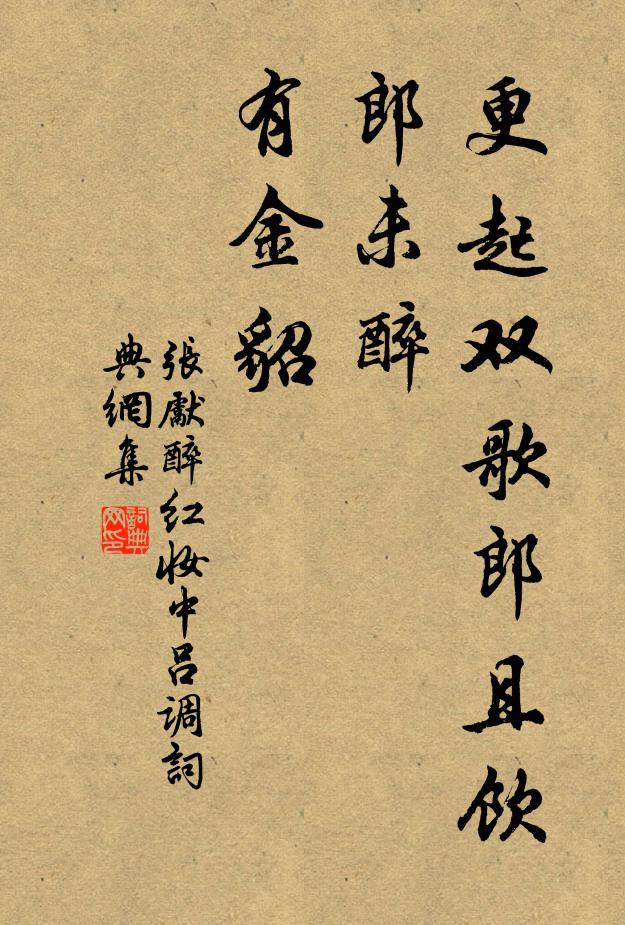 更起双歌郎且饮
郎未醉
有金貂
張獻醉红妆中吕调詞
典網集
詞典网印